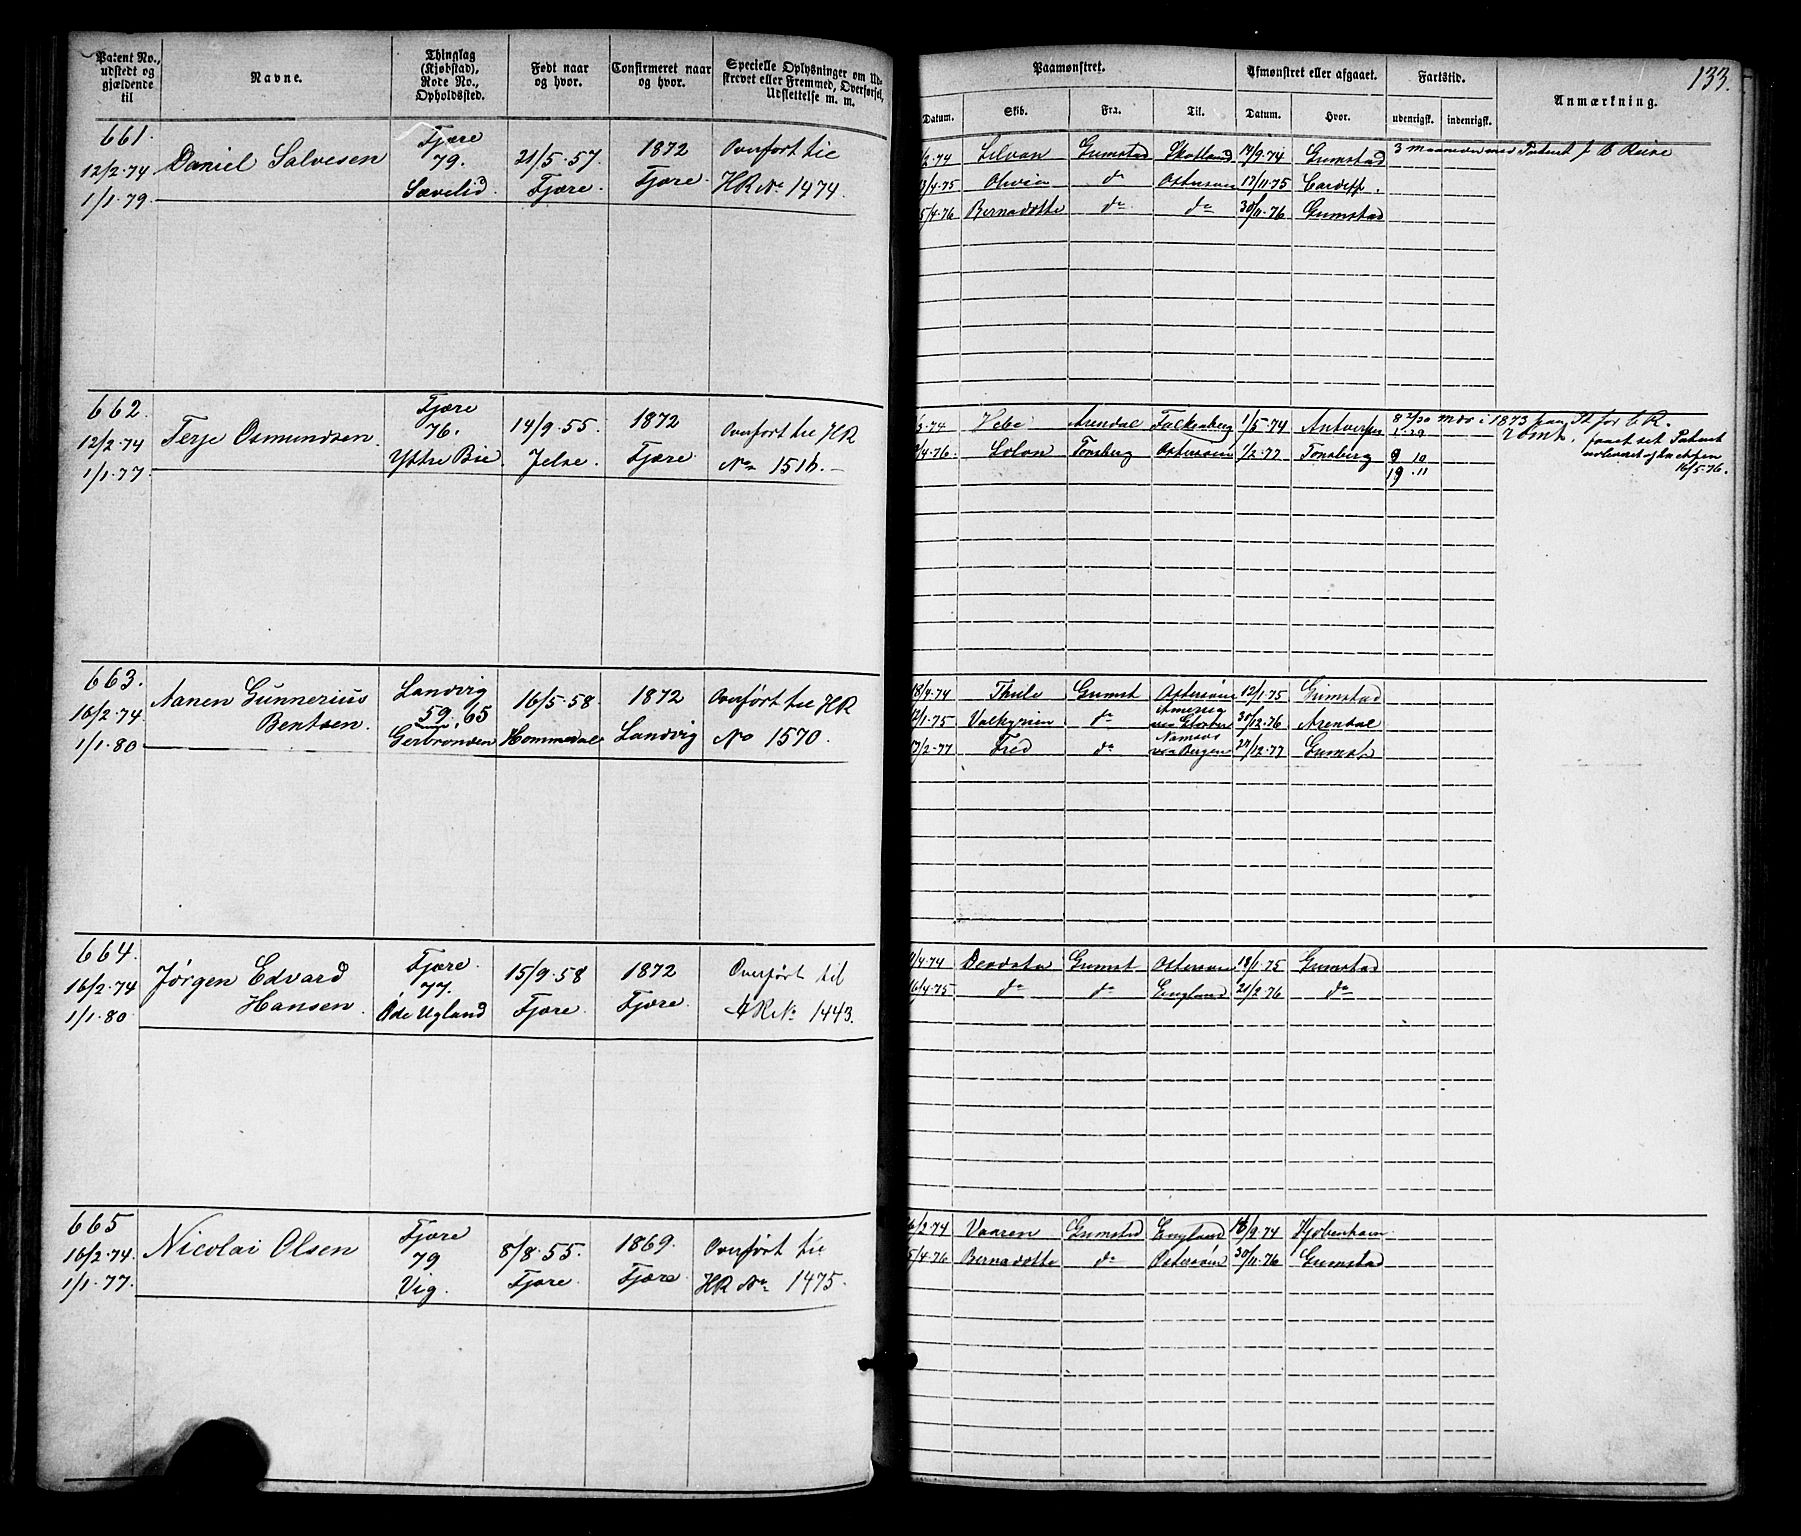 133.
Patent No., udstedt og gjældende til
Navne.
Thinglag (Kjøbstad), Rode No., Opholdssted.
Født naar og hvor.
Confirmeret naar og hvor.
Specielle Oplysninger om Udskrevet eller Fremmed, Overførsel, Udslettelse m. m.
Paamønstret.
Datum.
Skib.
Fra.
Til.
Afmønstret eller afgaaet.
Datum.
Hvor.
Fartstid.
udenrigsk.
indenrigsk.
Anmærkning.
661.
12/2·74
1/1·79.
Daniel Salvesen
Fjære
79.
Sævelid
21/5·57.
Fjære.
1872
Fjære.
Overført til
HR No 1474.
2·74 Grimstad Skotland 17/9·74 Grimstad 3 Maaneder med Patent
4·75 Olivia do Østersøen 17/11·75 Cardiff.
5/4·76 Bernadotte do do 30/11·76 Grimstad
662.
12/2·74
1/1·77.
Terje Osmundsen.
Fjære
76.
Yttre Bie
14/9·55.
Jelse.
1872
Fjære
Overført til HR
No 1516.
74 Hebe Arendal Falkenberg 1/5·74 Antverpen i 1873
4·76. Solon Tønsberg Østersøen 1/2·77 Tønsberg 9 10
19 11
16/5·76.
663.
16/2·74
1/1·80
Aanen Gunnerius
Bentsen.
Landvig
59.65
Gerbronden
16/5·58
Hommedal
1872
Landvig
Overført til HR
No 1570.
18/4·74 Thule Grimst Østersøen 12/1·75 Grimstad
1·75 Valkyrien do 30/12·76 Arendal
17/2·77 Fred do Namsos via Bergen 12·77 Grimst
664.
16/2·74
1/1·80
Jørgen Edvard
Hansen.
Fjære.
77.
Øde Ugland
15/9·58
Fjære
1872
Fjære.
Overført til
HR No 1443.
4·74 Grimst Østersøen 18/1·75 Grimstad
16/4·75 do do England 21/2·76 do
665
16/2·74.
1/1·77.
Nicolai Olsen
Fjære
79
Vig.
8/8·55.
Fjære.
1869.
Fjære
Overført til
HR No 1475.
2·74 Vaaren Grimstad England 9·74 Kjøbenhavn
5/4·76 Bernadotte do Østersøen 30/11·76 Grimstad